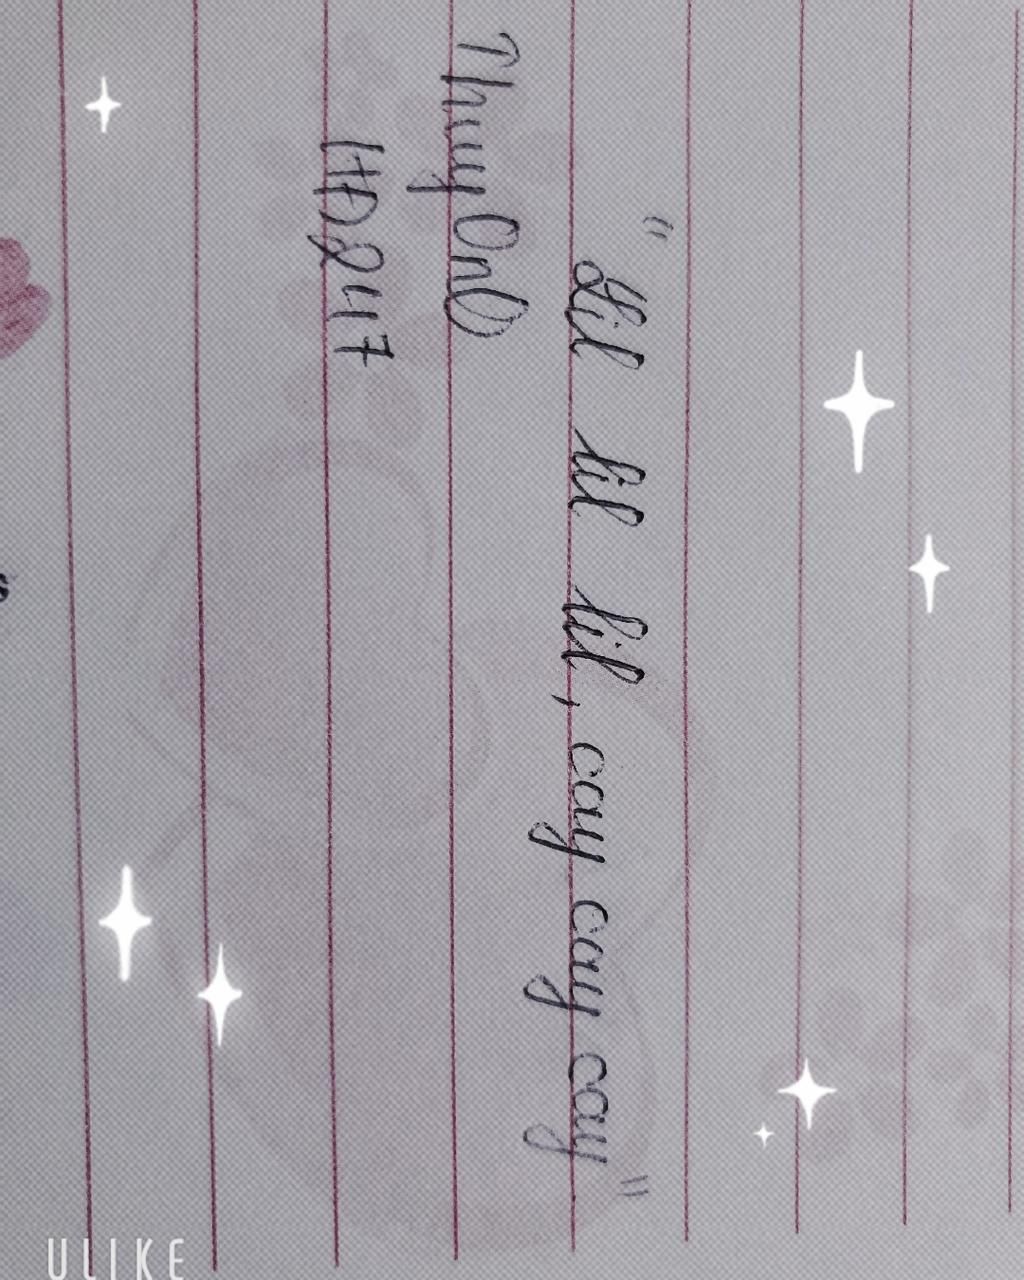 "Lil lil lil, cay cay cay"
ThuyOnD
HD247
ULIKE